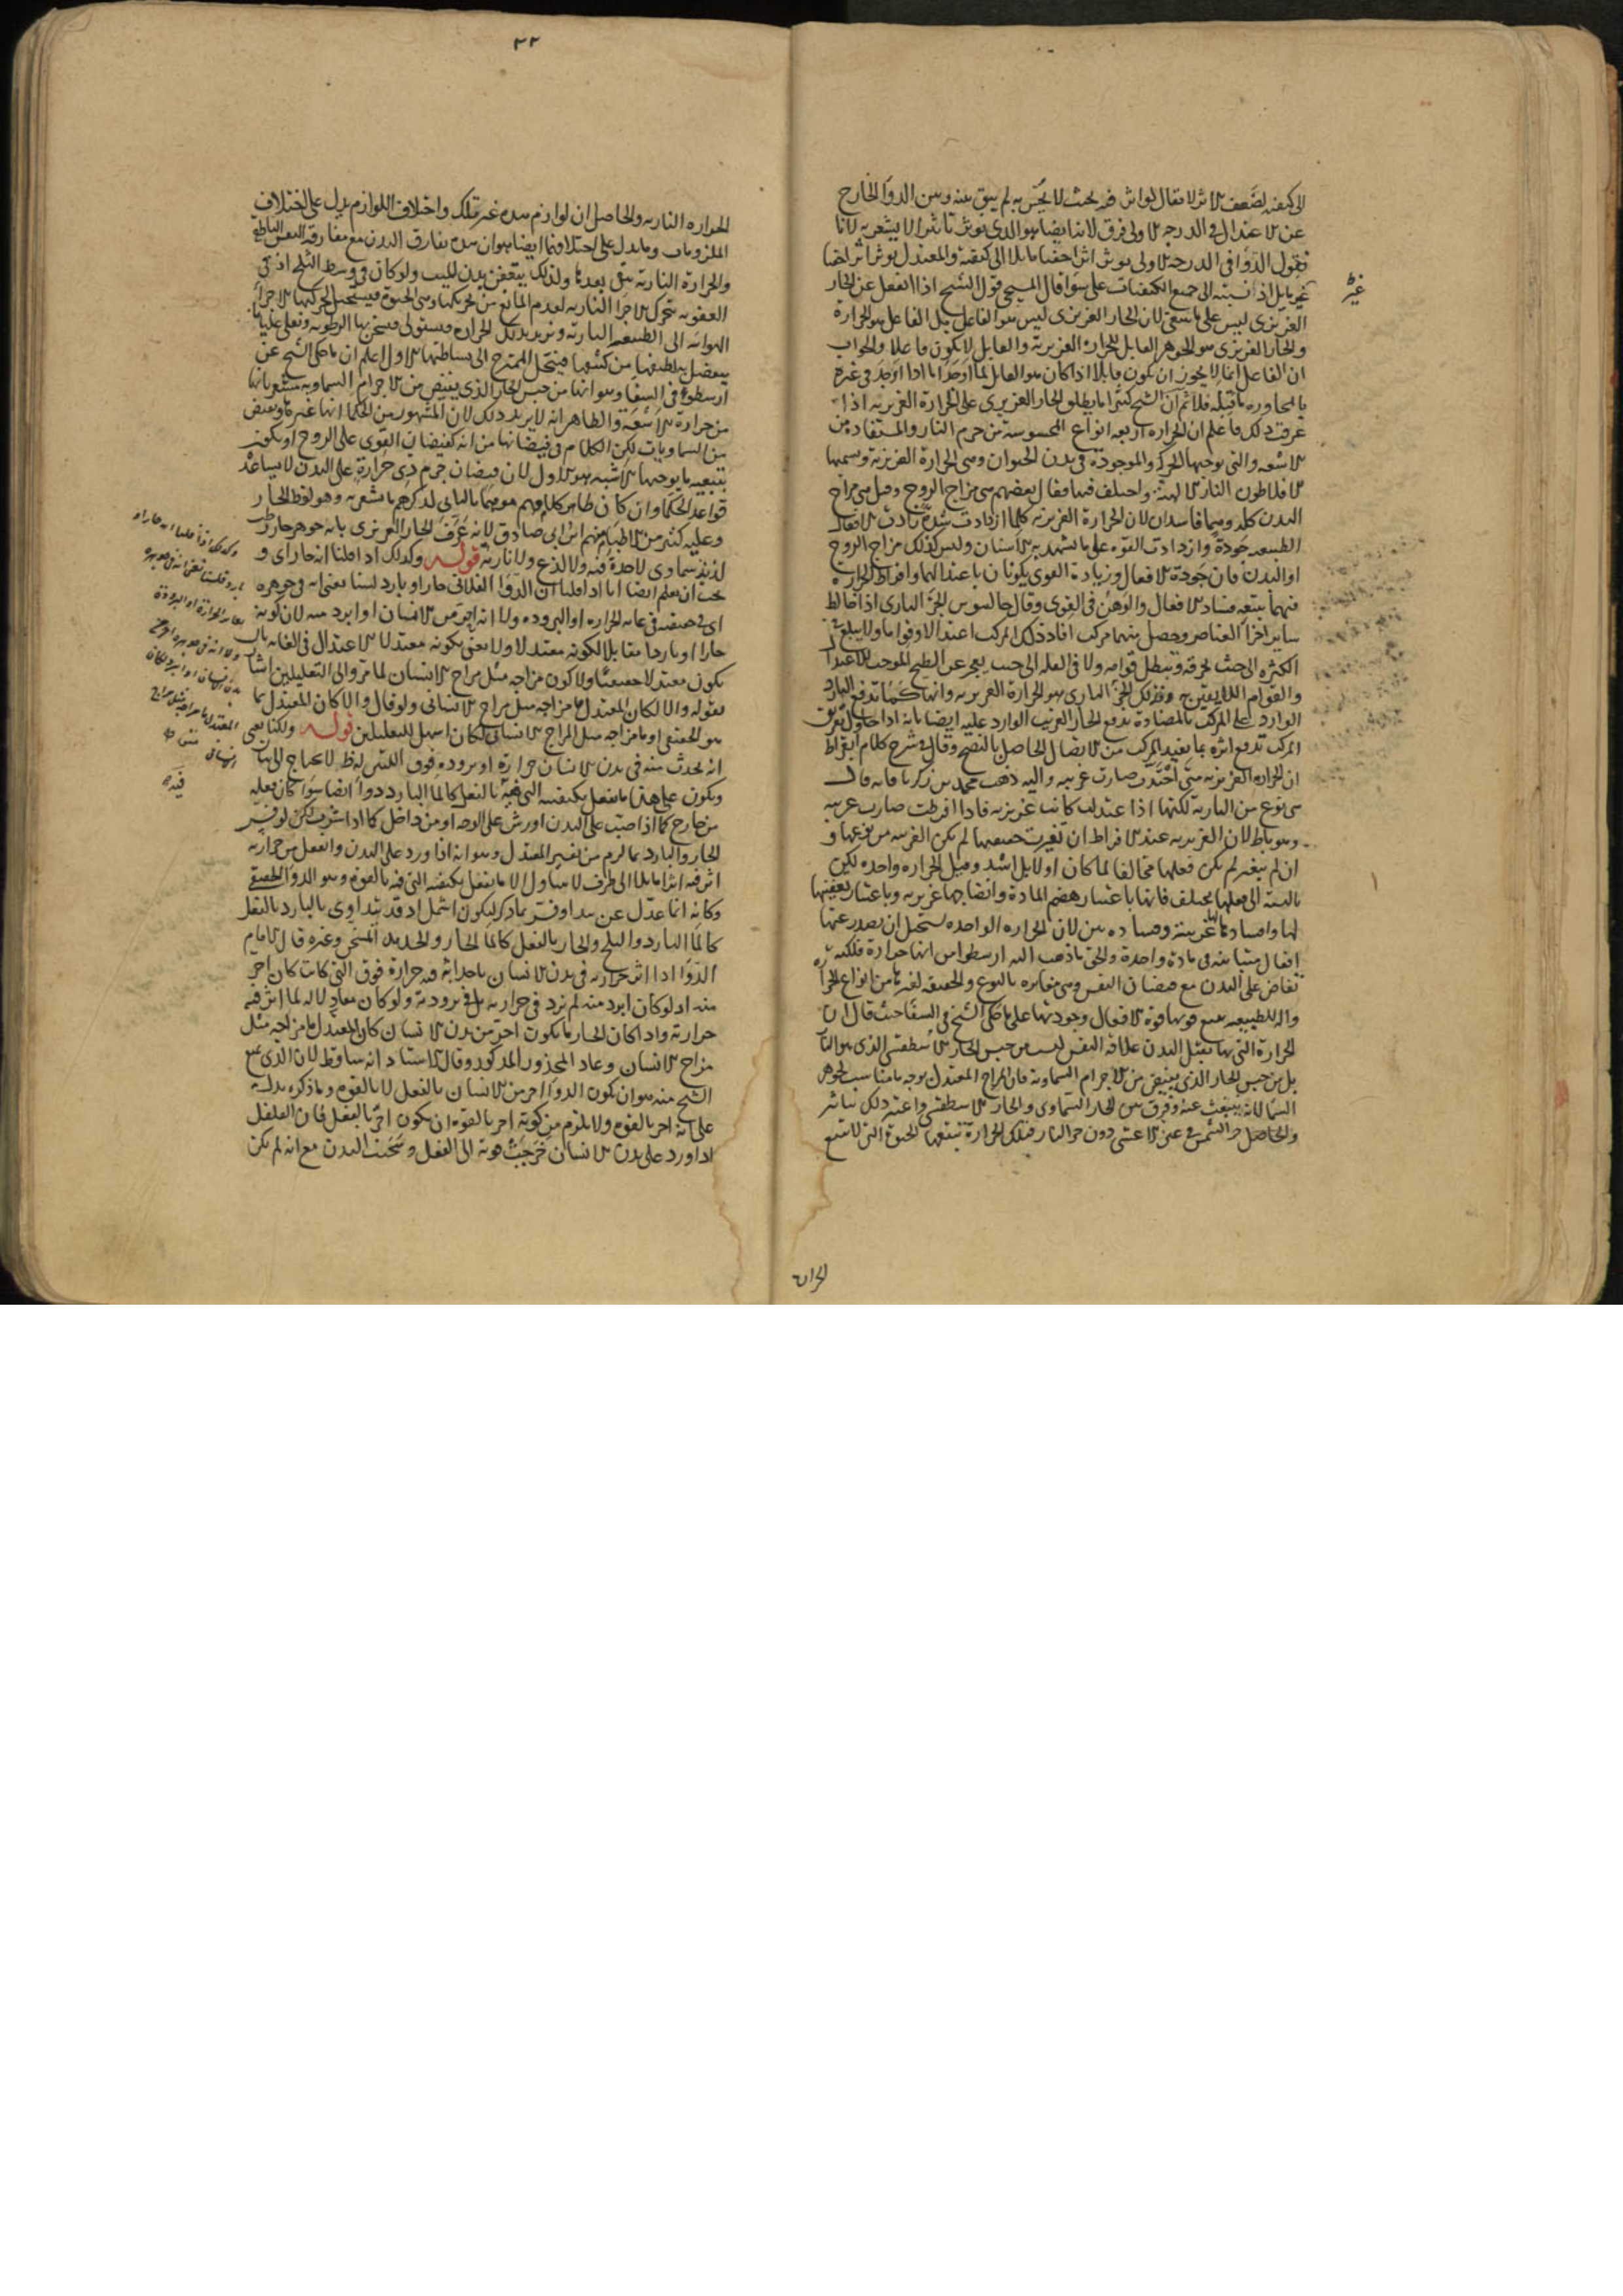 الى كيفيته لضعف الاثر لا يقال لو اثر فيه بحيث لا يحس به لم يبق بينه وبين الدواء الخارج
عن الاعتدال في الدرجة الاولى فرق لانه ايضا هو الذي يوثر تاثيرا لا يشعر به لانا
نقول الدوا في الدرجة الاولى يوثر اثرا خفيا مايلا الى كيفيته والمعتدل يوثر اثرا خفيا
غير مايل اذ نسبته الى جميع الكيفيات على سوا قال المسيحي قول الشيخ اذا انفعل عن الحار
الغريزي ليس على ما ينبغي لان الحار الغريزي ليس هو الفاعل بل الفاعل هو الحرارة
والحار الغريزي هو الجوهر القابل للحرارة الغريزية والقابل لا يكون فاعلا والجواب
ان الفاعل انما لا يجوز ان يكون قابلا اذا كان هو القابل لما اوجد اما اذا اوجد في غيره
بالمجاورة ما قبله فلا ثم ان الشيخ كثيرا ما يطلق الحار الغريزي على الحرارة الغريزية اذا
عرفت ذلك فاعلم ان الحرارة اربعة انواع المحسوسة من جرم النار والمستفادة من
الاشعة والتي توجبها الحركة والموجودة في بدن الحيوان وهي الحرارة الغريزية ويسميها
افلاطون النار الالهية واختلف فيها فقال بعضهم هي مزاج الروح وقيل هي مزاج
البدن كله وهما فاسدان لان الحرارة الغريزية كلما ازدادت شدة زادت الافعال
الطبيعية جودة وازدادت القوة على ما يشهد به الاسنان وليس كذلك مزاج الروح
او البدن فان جودة الافعال وزيادة القوى يكونان باعتدالهما وافراط الحرارة
فيهما يتبعه فساد الافعال والوهن في القوى وقال جالينوس الجزء الناري اذا خالط
ساير اجزا العناصر وحصل منهما مركب افاد ذلك المركب اعتدالا وقواما ولا يبلغ في
الكثرة الى حيث يحرقه ويبطل قوامه ولا في القلة الى حيث يعجز عن الطبخ الموجب للاعتدال
والقوام اللايقين به فذلك الجزء الناري هو الحرارة الغريزية وانها كما تدفع البارد
الوارد على المركب بالمضادة تدفع الحار الغريب الوارد عليه ايضا بانه اذا حاول تفريق
المركب تدفع اثره بما يفيد المركب من الاتصال الحاصل بالنضج وقال في شرح كلام ابقراط
ان الحرارة الغريزية متى احتدت صارت غريبة واليه ذهب محمد بن زكريا فانه قال
هي نوع من النارية لكنها اذا اعتدلت كانت غريزية فاذا افرطت صارت غريبة
وهو باطل لان الغريزية عند الافراط ان تغيرت حقيقتها لم تكن الغريبة من نوعها و
ان لم يتغير لم يكن فعلها مخالفا لما كان اولا بل اشد وقيل الحرارة واحدة لكن
بالنسبة الى فعلها يختلف فانها باعتبار هضم المادة وانضاجها غريزية وباعتبار تعفينها
لها وافسادها لها غريبة وفساده بين لان الحرارة الواحدة يستحيل ان يصدر عنها
افعال متباينة في مادة واحدة والحق ما ذهب اليه ارسطو من انها حرارة فلكية
تفاض على البدن مع فيضان النفس وهي مغايرة بالنوع والحقيقة لغيرها من انواع الحرارة
والة للطبيعة يتبع قوتها قوة الافعال وجودتها على ما حكى الشيخ في الشفا حيث قال ان
الحرارة التي بها يقبل البدن علاقة النفس ليست من جنس الحار الاسطقسي الذي هو النار
بل من جنس الحار الذي يفيض من الاجرام السماوية فان المزاج المعتدل بوجه ما مناسب لجوهر
السما لانه ينبعث عنه وفرق بين الحار السماوي والحار الاسطقسي واعتبر ذلك بتاثير
والحاصل حر الشمس في عين الاعشى دون حر النار فتلك الحرارة تتبعها الحيوة التي لا تتبع
غير
الحرارة
٢٢
الحرارة النارية والحاصل ان لوازم هذه غير تلك واختلاف اللوازم يدل على اختلاف
الملزومات ومما يدل على اختلافهما ايضا هو ان هذه تفارق البدن مع مفارقة النفس الناطقة
والحرارة النارية تبقى بعدها ولذلك يتعفن بدن الميت ولو كان في وسط الثلج اذ في
العفونة تتحرك الاجزا النارية لعدم المانع من تحريكها وهي الحيوة فيستحيل لحركتها الاجزا
الهوائية الى الطبيعة النارية وتزيد بذلك الحرارة فيستولي فيسخن بها الرطوبة وتغلي غليانا
يفصل به لطيفها من كثيفها فينحل الممتزج الى بسائطها الاول اعلم ان ما حكى الشيخ عن
ارسطو في الشفا وهو انها من جنس الحار الذي يفيض من الاجرام السماوية مشعر بانها
من حرارة الاشعة والظاهر انه لا يريد ذلك لان المشهور من الحكما انها غيرها ويفيض
من السماويات لكن الكلام في فيضانها من انه كفيضان القوى على الروح او يكون
بتبعية ما يوجبها الاشبه هو الاول لان فيضان جرم ذي حرارة على البدن لا يساعد
قواعد الحكما وان كان ظاهر كلامهم موهما بالثاني لذكرهم ما يشعر به وهو لفظ الحار
وعليه كثير من الاطبا منهم ابن ابي صادق لانه عرف الحار الغريزي بانه جوهر حار رطب
لذيذ سماوي لا حدة فيه ولا لذع ولا نارية قوله وكذلك اذا قلنا انه حار اي و
يجب ان نعلم ايضا انا اذا قلنا ان الدوا الفلاني حار او بارد لسنا نعني انه في جوهره
اي في حقيقته في غاية الحرارة او البرودة ولا انه احر من الانسان او ابرد منه لان كونه
حارا او باردا مقابلا لكونه معتدلا ولا نعني بكونه معتدلا الاعتدال في الغاية بان
يكون معتدلا حقيقيا ولا كون مزاجه مثل مزاج الانسان لما مر والى التعليلين اشار
بقوله والا لكان المعتدل ما مزاجه مثل مزاج الانساني ولو قال والا كان المعتدل ما
هو الحقيقي او ما مزاجه مثل المزاج الانساني لكان اشمل للتعليلين قوله ولكنا نعني
انه يحدث منه في بدن الانسان حرارة او برودة فوق اللتين له ظ لا يحتاج الى بيان
ويكون على هذا ما يفعل بكيفيته التي فيه بالفعل كالما البارد دوا ايضا سوا كان فعله
من خارج كما اذا صب على البدن او رش على الوجه او من داخل كما اذا شرب لكن لو فسر
الحار والبارد بما لزم من تفسير المعتدل وهو انه اذا ورد على البدن وانفعل من حرارته
اثر فيه اثرا مايلا الى طرف لا يتناول الا ما يفعل بكيفيته التي فيه بالقوة وهو الدوا الحقيقي
وكانه انما عدل عن هذا وفسر بما ذكر ليكون اشمل اذ قد يتداوى بالبارد بالفعل
كالما البارد والثلج والحار بالفعل كالما الحار والحديد المسخن وغيره قال الامام
الدوا اذا اثر حرارته في بدن الانسان باحداثه فيه حرارة فوق التي كانت كان احر
منه اذ لو كان ابرد منه لم يزد في حرارته بل في برودته ولو كان معادلا له لما اثر فيه
حرارة واذا كان الحار ما يكون احر من بدن الانسان كان المعتدل ما مزاجه مثل
مزاج الانسان وعاد المحذور المذكور وقال الاستاد انه ساقط لان الذي منع
الشيخ منه هو ان يكون الدوا احر من الانسان بالفعل لا بالقوة وما ذكره يدل
على انه احر بالقوة ولا يلزم من كونه احر بالقوة ان يكون احر بالفعل فان الفلفل
اذا ورد على بدن الانسان خرجت قوته الى الفعل وسخنت البدن مع انه لم يكن
وكذلك اذا قلنا انه حار او
بارد فلسنا نعني انه في جوهره
بغاية الحرارة او البرودة
ولا انه في جوهره احر من
بدن الانسان او ابرد والا لكان
المعتدل ما مزاجه مثل مزاج
الانسان